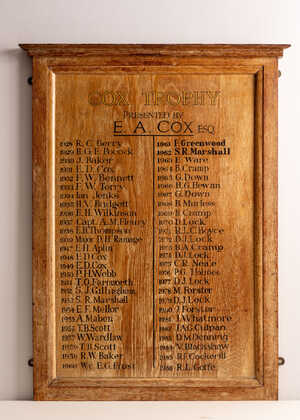 COX TROPHY
PRESENTED BY
E. A. COX ESQ.
1928 R. C. Berry
1929 B. G. E. Pocock
1930 J. Baker
1931 E. D. Cox
1932 F. W. Bennett
1933 F. W. Torry
1934 Ian Jenks
1935 H. V. Bridgett
1936 E. H. Wilkinson
1937 Capt. A. M. Fleury
1938 E. B. Thompson
1939 Major D. H. Ramage
1947 E. H. Aplin
1948 E. D. Cox
1949 E. D. Cox
1950 P. H. Webb
1951 T. O. Farnworth
1952 S. J. Gillingham
1953 S. R. Marshall
1954 E. F. Mellor
1955 A. Maben
1956 T. B. Scott
1957 W. Wardlaw
1958 T. B. Scott
1959 R. W. Baker
1960 E. G. Frost
1961 F. Greenwood
1962 S. R. Marshall
1963 E. Ware
1964 B. Cramp
1965 G. Down
1966 B. G. Bewan
1967 G. Down
1968 B. Murless
1969 B. Cramp
1970 D. J. Lock
1971 R. L. C. Boyce
1972 D. J. Lock
1973 B. A. Cramp
1974 D. J. Lock
1975 C. R. Neale
1976 P. G. Holmes
1977 D. J. Lock
1978 M. Forster
1979 D. J. Lock
1980 J. Forster
1981 L. Whatmore
1982 J. A. G. Culpan
1983 D. McDenning
1984 V. Blackshaw
1985 R. F. Cockerill
1986 R. L. Goffe